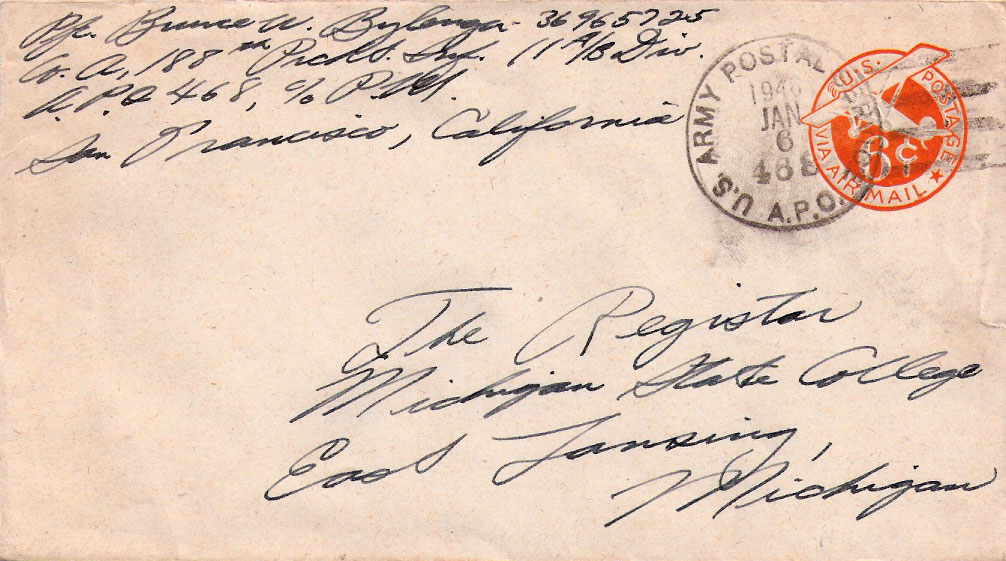 Pfc. Bruce W. Bylenga - 36965725
Co. A, 188th Prcht. Inf. 11 A/B Div.
A.P.O 468, c/o P.M.
San Francisco, California
U.S. ARMY POSTAL
1946
JAN
6
468
A.P.O.
U.S. POSTAGE
6c
VIA AIR MAIL
The Registar
Michigan State College
East Lansing,
Michigan